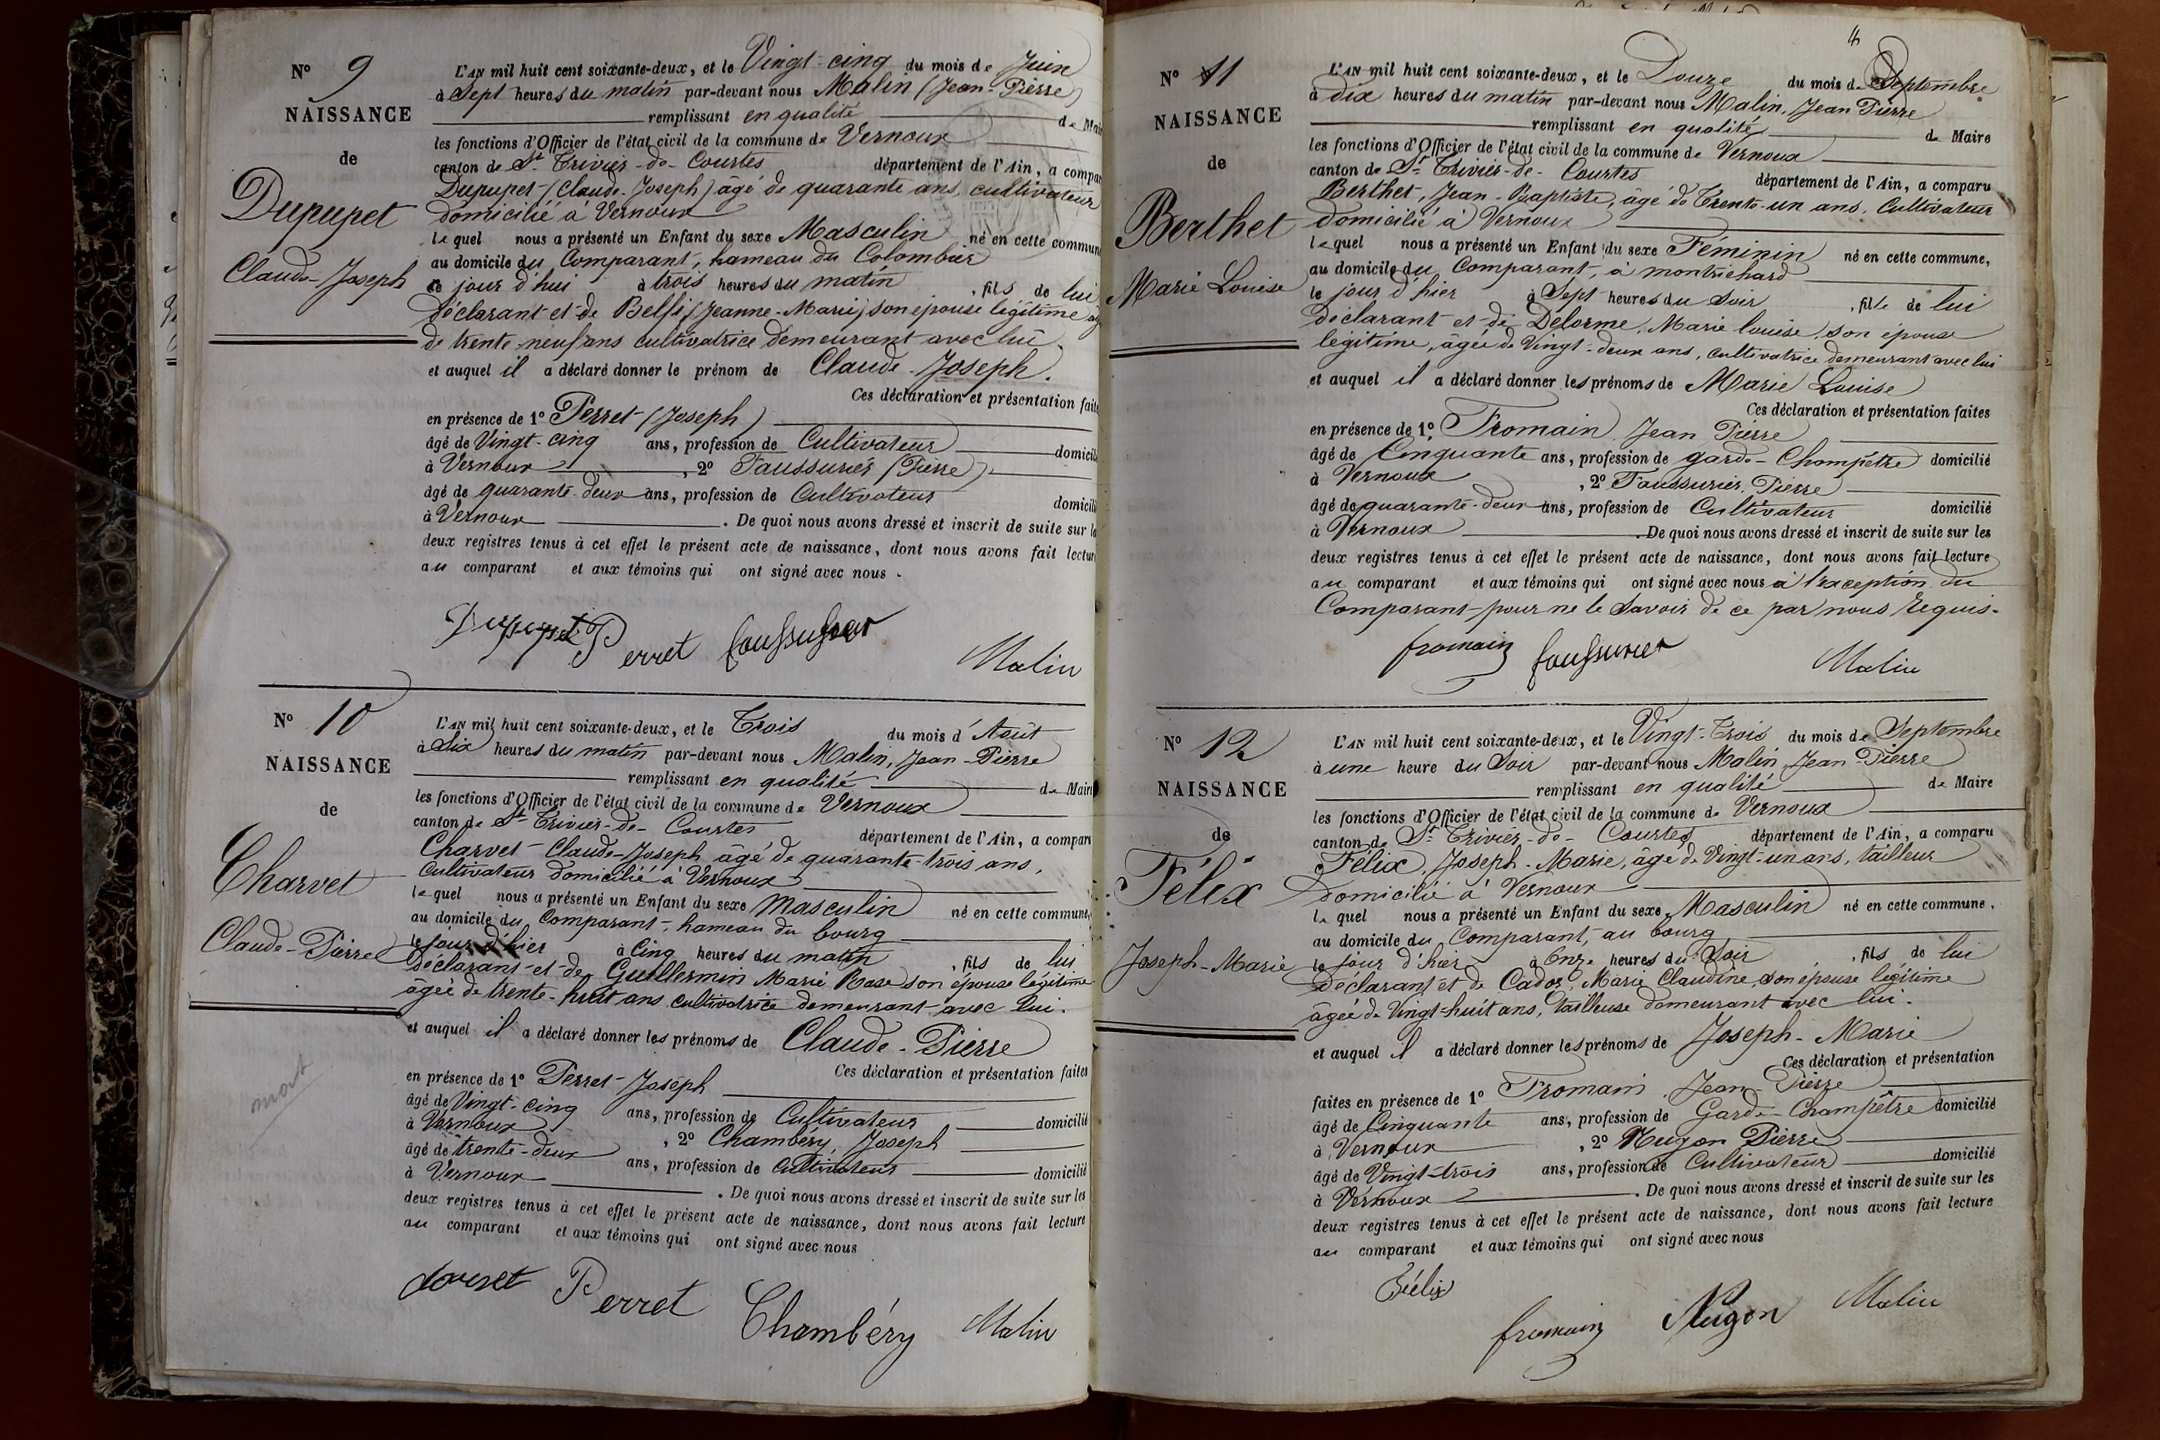 N° 9
NAISSANCE
de
Dupupet
Claude-Joseph
L'AN mil huit cent soixante-deux, et le Vingt-cinq du mois de Juin
à Sept heures du matin par-devant nous Malin (Jean-Pierre)
remplissant en qualité de Mair
les fonctions d'Officier de l'état civil de la commune de Vernoux
canton de St Trivier-de-Courtes département de l'Ain, a compar
Dupupet (Claude-Joseph) âgé de quarante ans, cultivateur
domicilié à Vernoux
lequel nous a présenté un Enfant du sexe Masculin né en cette commune
au domicile du Comparant, hameau du Colombier
ce jour d'hui à trois heures du matin, fils de lui
déclarant et de (Jeanne-Marie) son épouse légitime
de trente-neuf ans cultivatrice demeurant avec lui.
et auquel il a déclaré donner le prénom de Claude-Joseph.
Ces déclaration et présentation faite
en présence de 1° Perret (Joseph)
âgé de Vingt-cinq ans, profession de Cultivateur domicil
à Vernoux, 2° Faussurier (Pierre)
âgé de quarante-deux ans, profession de Cultivateur domicili
à Vernoux. De quoi nous avons dressé et inscrit de suite sur le
deux registres tenus à cet effet le présent acte de naissance, dont nous avons fait lectur
au comparant et aux témoins qui ont signé avec nous.
Dupupet Perret faussurier
Malin
N° 10
NAISSANCE
de
Charvet
Claude-Pierre
mort
L'AN mil huit cent soixante-deux, et le Trois du mois d'Août
à Six heures du matin par-devant nous Malin, Jean-Pierre
remplissant en qualité de Mair
les fonctions d'Officier de l'état civil de la commune de Vernoux
canton de St Trivier-de-Courtes département de l'Ain, a compar
Charvet Claude-Joseph âgé de quarante-trois ans,
cultivateur domicilié à Vernoux
lequel nous a présenté un Enfant du sexe Masculin né en cette commune,
au domicile du Comparant, hameau du bourg
le jour d'hier à Cinq heures du matin, fils de lui
déclarant et de Guillermin Marie Rose son épouse légitime
âgée de trente-huit ans cultivatrice demeurant avec lui.
et auquel il a déclaré donner les prénoms de Claude-Pierre
Ces déclaration et présentation faites
en présence de 1° Perret Joseph
âgé de Vingt-cinq ans, profession de Cultivateur domicilié
à Vernoux, 2° Chambéry, Joseph
âgé de trente-deux ans, profession de Cultivateur domicilié
à Vernoux. De quoi nous avons dressé et inscrit de suite sur les
deux registres tenus à cet effet le présent acte de naissance, dont nous avons fait lecture
au comparant et aux témoins qui ont signé avec nous
Perret Chambéry Malin
4
N° 11
NAISSANCE
de
Berthet
Marie Louise
L'AN mil huit cent soixante-deux, et le Douze du mois de Septembre
à dix heures du matin par-devant nous Malin, Jean Pierre
remplissant en qualité de Maire
les fonctions d'Officier de l'état civil de la commune de Vernoux
canton de St Trivier-de-Courtes département de l'Ain, a comparu
Berthet, Jean-Baptiste, âgé de Trente-un ans, Cultivateur
domicilié à Vernoux
lequel nous a présenté un Enfant du sexe Féminin né en cette commune,
au domicile du Comparant, à montrichard
le jour d'hier à Sept heures du Soir, fille de lui
déclarant et de Delorme, Marie louise, son épouse
légitime, âgée de Vingt-deux ans, cultivatrice demeurant avec lui
et auquel il a déclaré donner les prénoms de Marie Louise
Ces déclaration et présentation faites
en présence de 1° Fromain Jean Pierre
âgé de Cinquante ans, profession de garde-Champêtre domicilié
à Vernoux, 2° Faussurier, Pierre
âgé de quarante-deux ans, profession de Cultivateur domicilié
à Vernoux. De quoi nous avons dressé et inscrit de suite sur les
deux registres tenus à cet effet le présent acte de naissance, dont nous avons fait lecture
au comparant et aux témoins qui ont signé avec nous à l'exception du
Comparant pour ne le Savoir de ce par nous requis.
fromain faussurier Malin
N° 12
NAISSANCE
de
Félix
Joseph-Marie
L'AN mil huit cent soixante-deux, et le Vingt-Trois du mois de Septembre
à une heure du Soir par-devant nous Malin Jean-Pierre
remplissant en qualité de Maire
les fonctions d'Officier de l'état civil de la commune de Vernoux
canton de St Trivier-de-Courtes département de l'Ain, a comparu
Félix, Joseph-Marie, âgé de Vingt-un ans, tailleur
domicilié à Vernoux
lequel nous a présenté un Enfant du sexe Masculin né en cette commune,
au domicile du Comparant, au bourg
le jour d'hier à Onze heures du Soir, fils de lui
déclarant et de Cador, Marie Claudine, son épouse légitime
âgée de Vingt-huit ans, tailleuse demeurant avec lui.
et auquel il a déclaré donner les prénoms de Joseph-Marie
Ces déclaration et présentation
faites en présence de 1° Fromain, Jean-Pierre
âgé de Cinquante ans, profession de Garde-Champêtre domicilié
à Vernoux, 2° Nugon Pierre
âgé de Vingt-trois ans, profession de Cultivateur domicilié
à Vernoux. De quoi nous avons dressé et inscrit de suite sur les
deux registres tenus à cet effet le présent acte de naissance, dont nous avons fait lecture
au comparant et aux témoins qui ont signé avec nous
Félix
fromain Nugon Malin